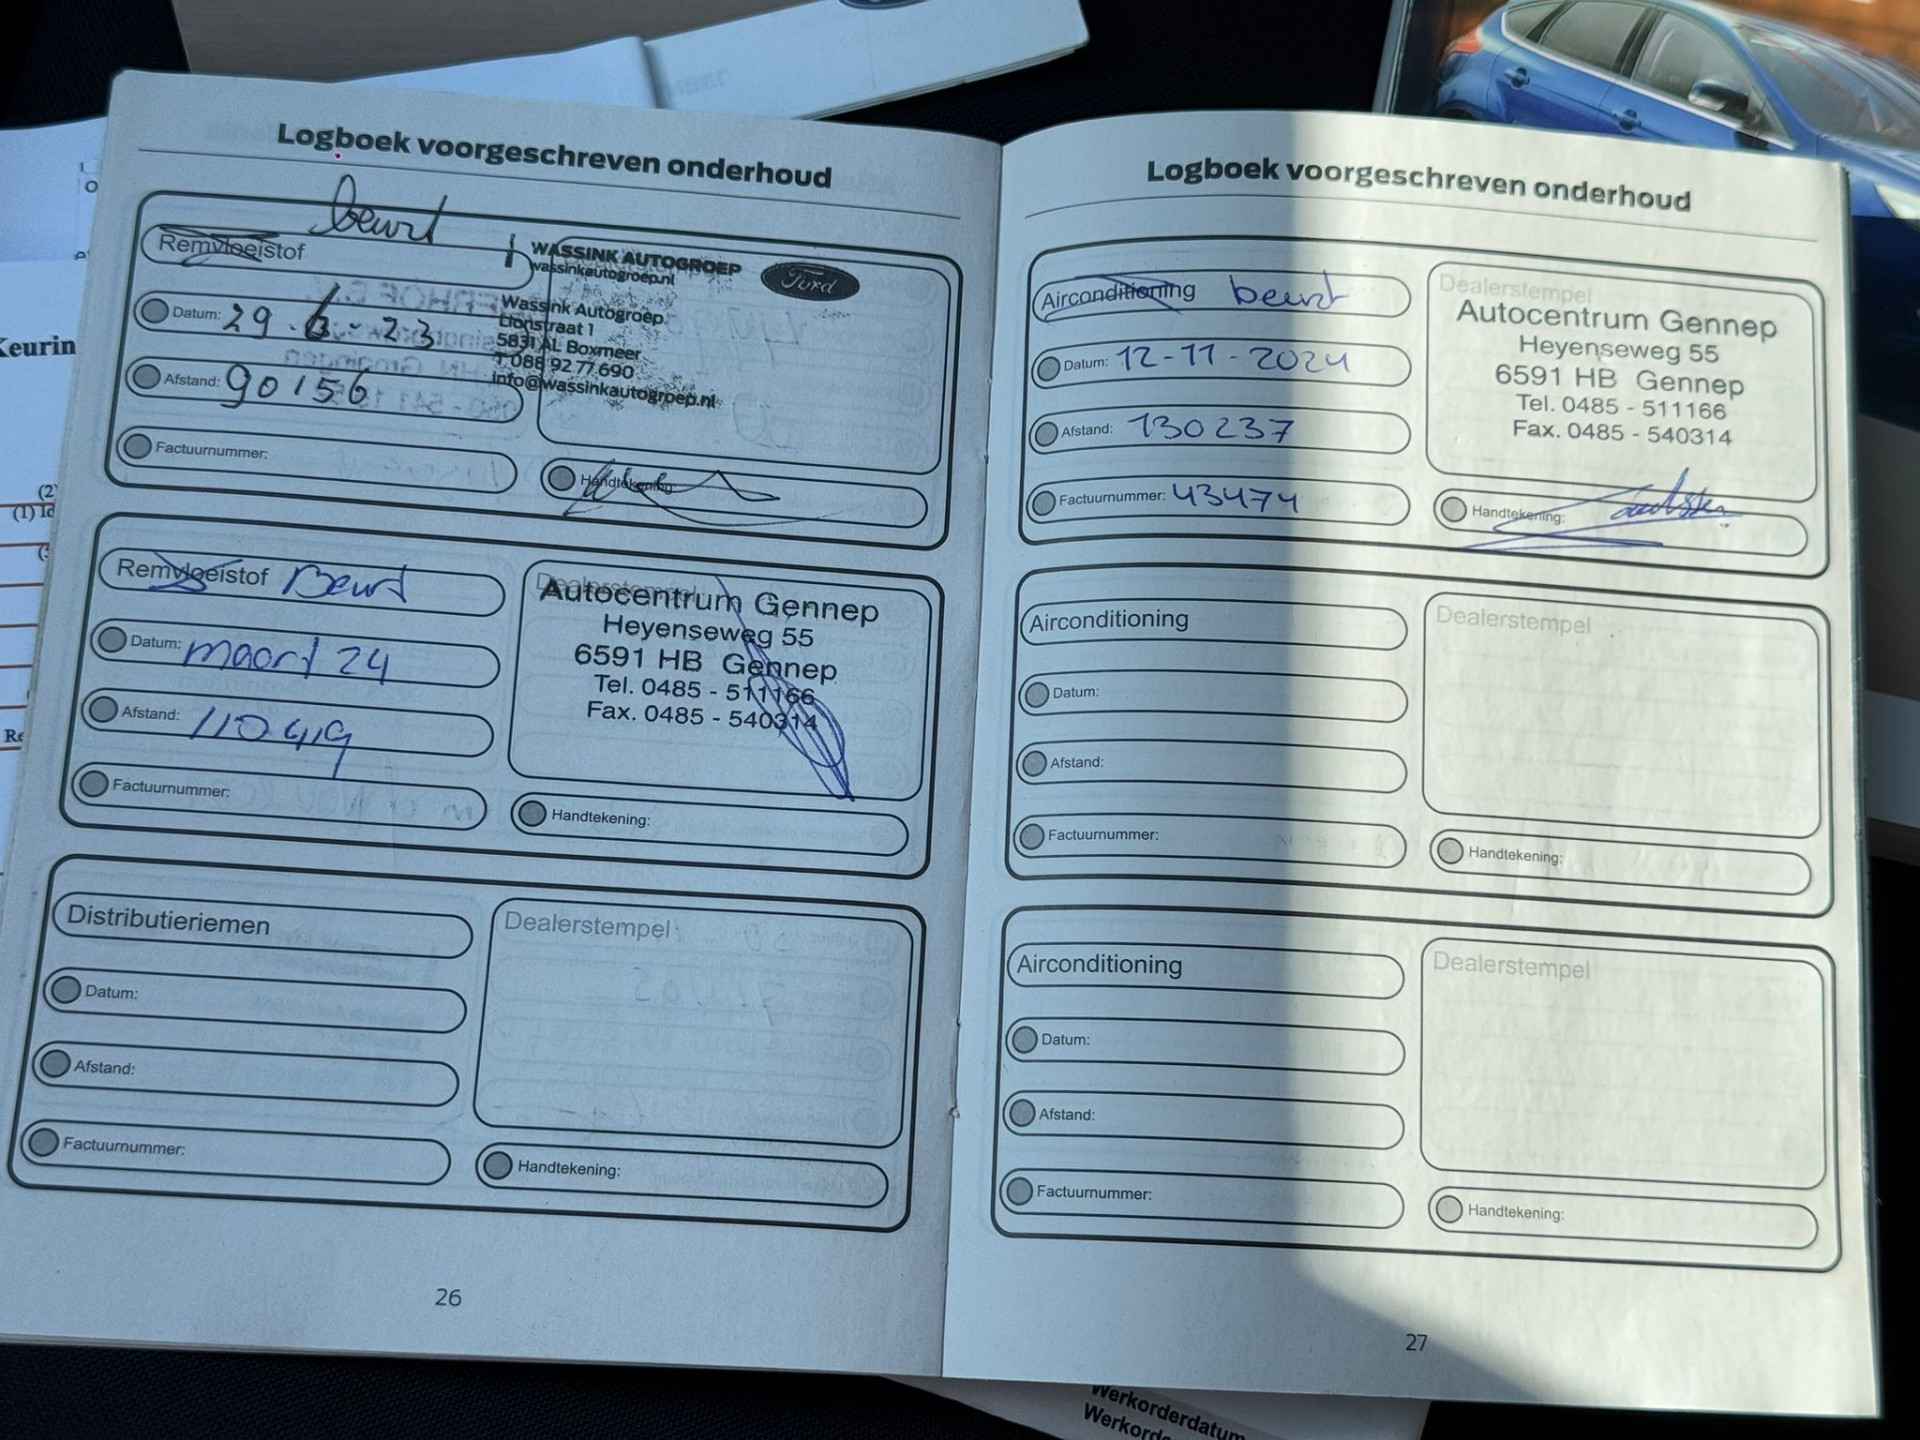 Logboek voorgeschreven onderhoud
beurt
Remvloeistof
WASSINK AUTOGROEP
wassinkautogroep.nl
Ford
Wassink Autogroep
Lionstraat 1
5831 AL Boxmeer
T 088 92 77 690
info@wassinkautogroep.nl
Datum: 29-6-23
Afstand: 90156
Factuurnummer:
Handtekening:
Remvloeistof Beurt
Datum: maart 24
Afstand: 110419
Factuurnummer:
Dealerstempel
Autocentrum Gennep
Heyenseweg 55
6591 HB Gennep
Tel. 0485 - 511166
Fax. 0485 - 540314
Handtekening:
Distributieriemen
Datum:
Afstand:
Factuurnummer:
Dealerstempel
Handtekening:
26
Logboek voorgeschreven onderhoud
Airconditioning beurt
Datum: 12-11-2024
Afstand: 130237
Factuurnummer: 43474
Dealerstempel
Autocentrum Gennep
Heyenseweg 55
6591 HB Gennep
Tel. 0485 - 511166
Fax. 0485 - 540314
Handtekening:
Airconditioning
Datum:
Afstand:
Factuurnummer:
Dealerstempel
Handtekening:
Airconditioning
Datum:
Afstand:
Factuurnummer:
Dealerstempel
Handtekening:
27
Keurin
(2)
Werkorderdatum
Werkorde